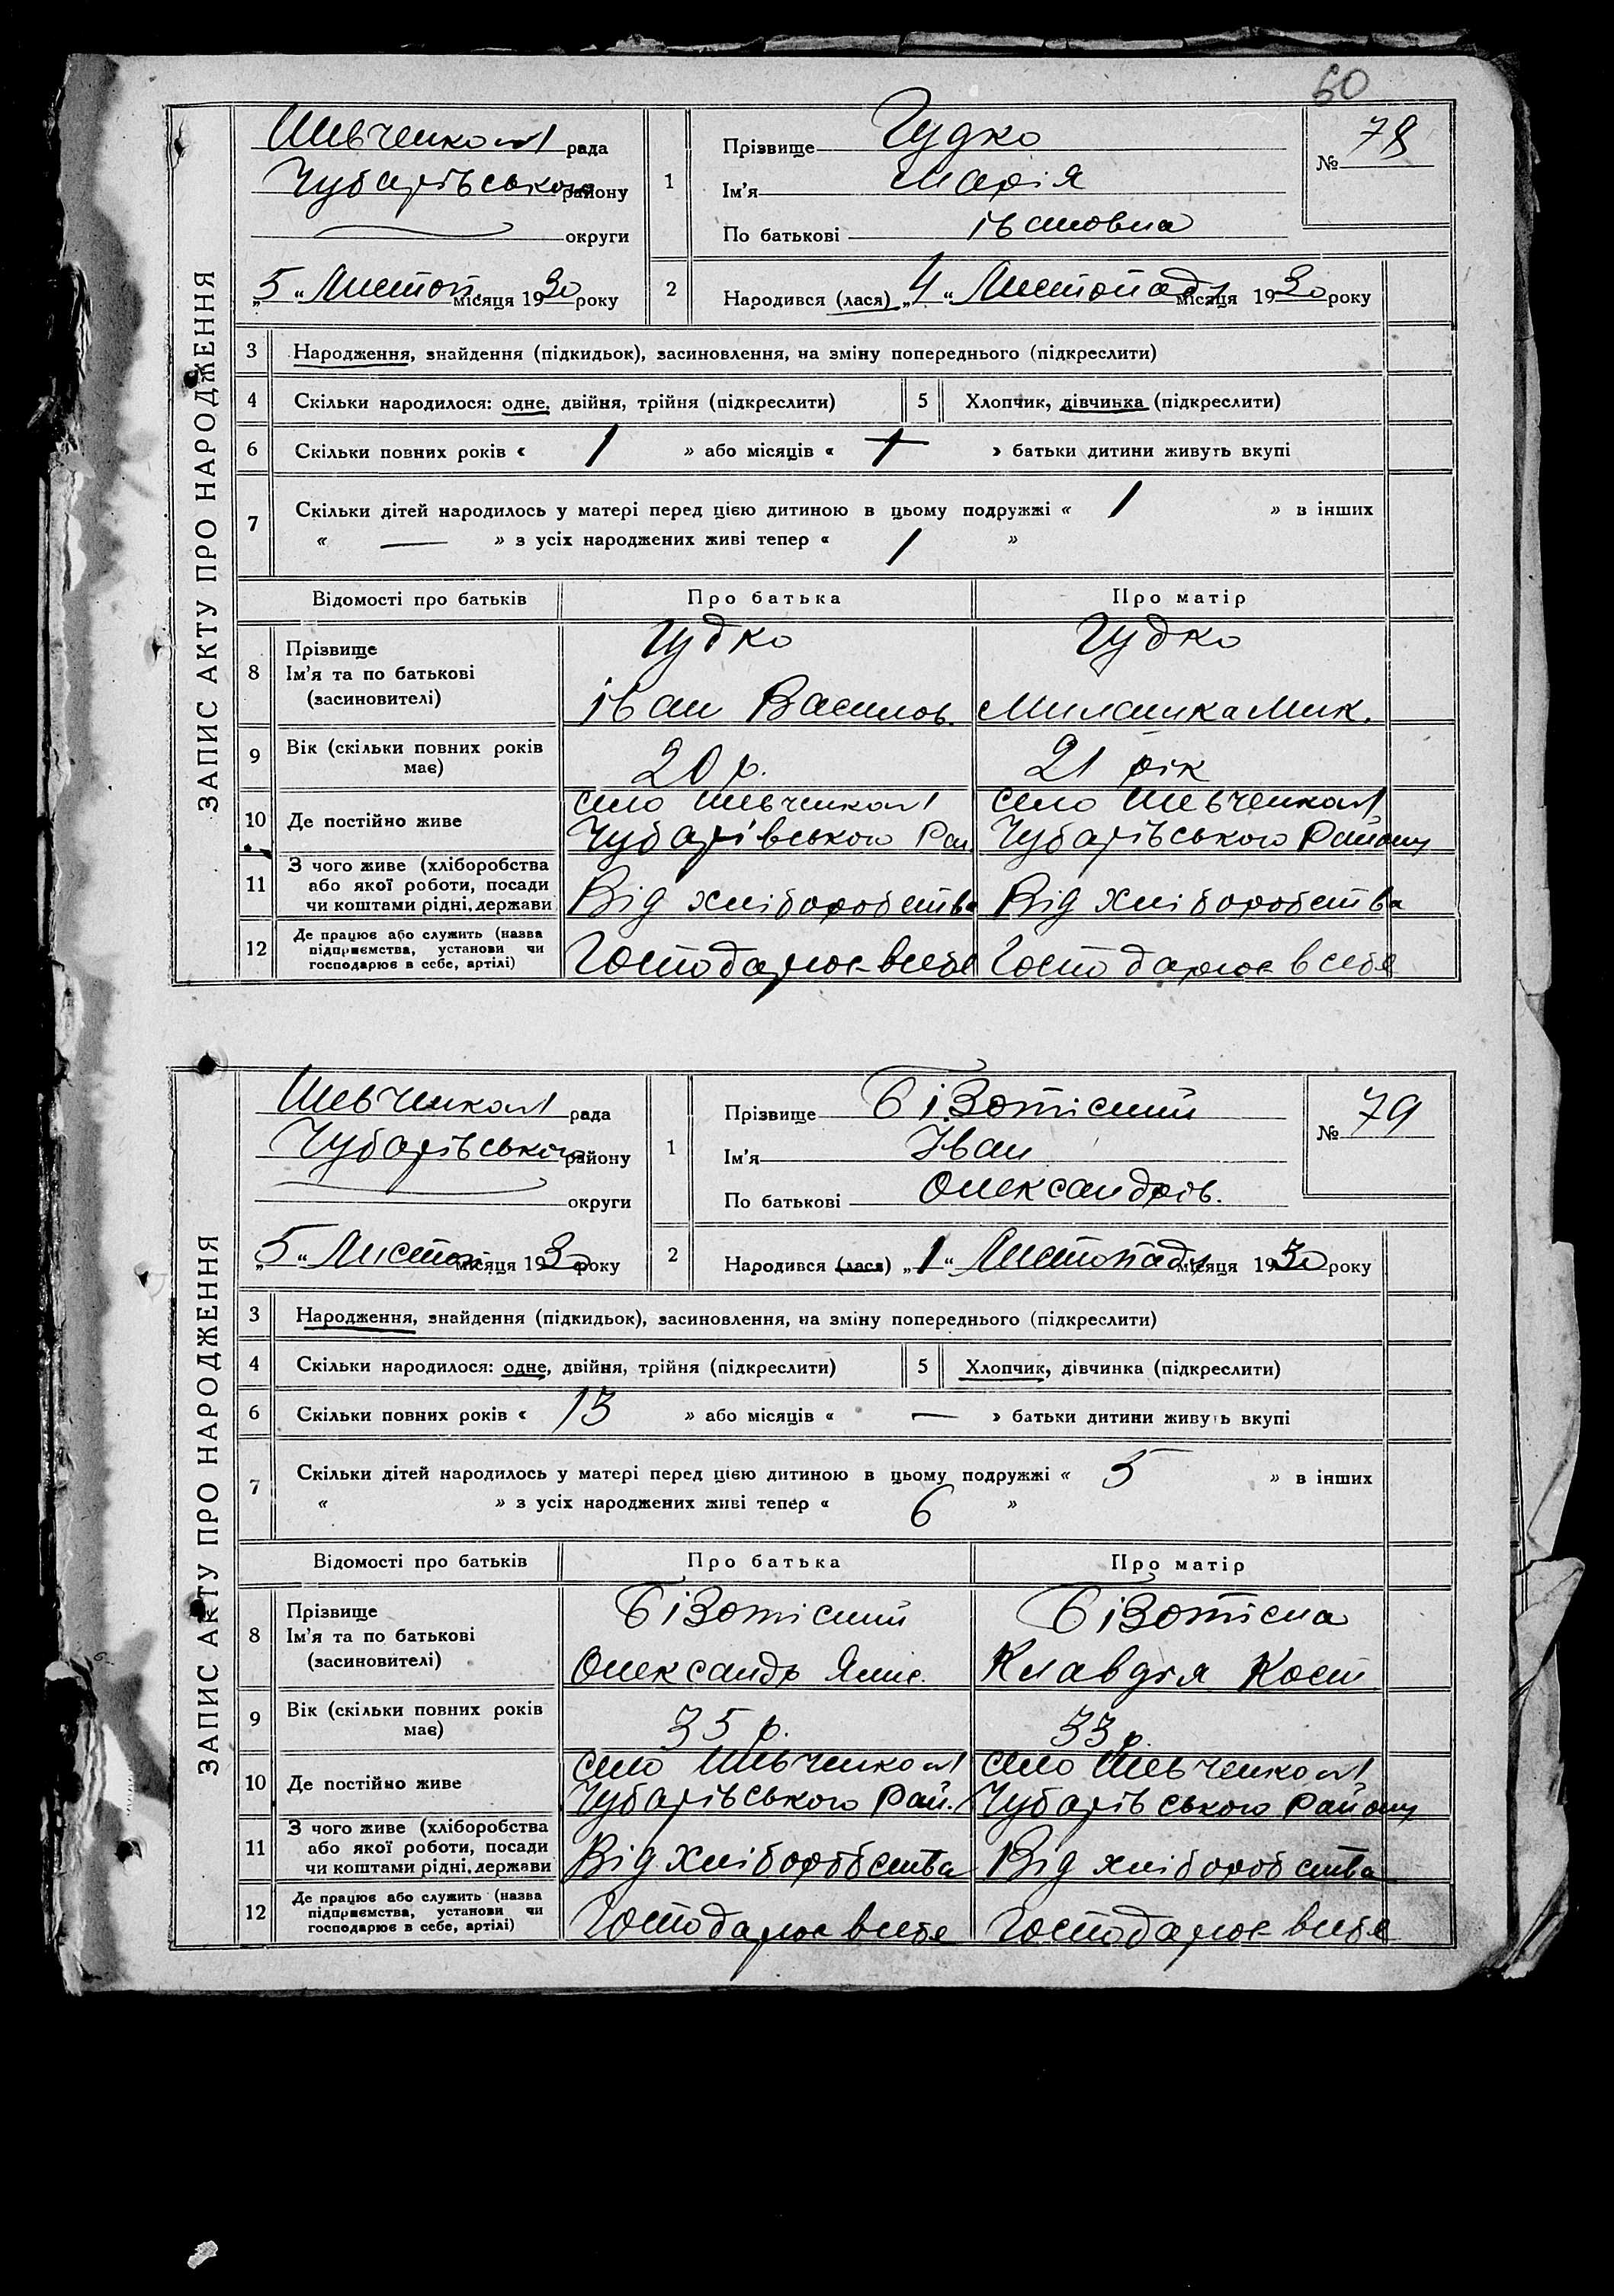 60
ЗАПИС АКТУ ПРО НАРОДЖЕННЯ
Шевченко №1 рада
Чубарівського району
округи
„5“ Листоп. місяця 1930 року
1
Прізвище Гудко
Ім'я Марія
По батькові Івановна
№ 78
2 Народився (лася) „4“ Листопада місяця 1930 року
3 Народження, знайдення (підкидьок), засиновлення, на зміну попереднього (підкреслити)
4 Скільки народилося: одне, двійня, трійня (підкреслити) 5 Хлопчик, дівчинка (підкреслити)
6 Скільки повних років « 1 » або місяців « » батьки дитини живуть вкупі
7 Скільки дітей народилось у матері перед цією дитиною в цьому подружжі « 1 » в інших
« — » з усіх народжених живі тепер « 1 »
Відомості про батьків Про батька Про матір
8 Прізвище
Ім'я та по батькові
(засиновителі)
Гудко
Іван Василов.
Гудко
Миланка Мик.
9 Вік (скільки повних років
має)
20 р.
21 рік
10 Де постійно живе
село Шевченко №1
Чубарівського Рай.
село Шевченко №1
Чубарівського Району
11 З чого живе (хліборобства
або якої роботи, посади
чи коштами рідні, держави
Від хліборобства
Від хліборобства
12 Де працює або служить (назва
підприємства, установи чи
господарює в себе, артілі)
Господарює в себе
Господарює в себе
ЗАПИС АКТУ ПРО НАРОДЖЕННЯ
Шевченко №1 рада
Чубарівського району
округи
„5“ Листоп. місяця 1930 року
1
Прізвище БіЗотісний
Ім'я Іван
По батькові Олександров.
№ 79
2 Народився (лася) „1“ Листопада місяця 1930 року
3 Народження, знайдення (підкидьок), засиновлення, на зміну попереднього (підкреслити)
4 Скільки народилося: одне, двійня, трійня (підкреслити) 5 Хлопчик, дівчинка (підкреслити)
6 Скільки повних років « 13 » або місяців « — » батьки дитини живуть вкупі
7 Скільки дітей народилось у матері перед цією дитиною в цьому подружжі « 5 » в інших
« » з усіх народжених живі тепер « 6 »
Відомості про батьків Про батька Про матір
8 Прізвище
Ім'я та по батькові
(засиновителі)
БіЗотісний
Олександр
БіЗотісна
Клавдія Кост
9 Вік (скільки повних років
має)
35 р.
33 р.
10 Де постійно живе
село Шевченко №1
Чубарівського Рай.
село Шевченко №1
Чубарівського Району
11 З чого живе (хліборобства
або якої роботи, посади
чи коштами рідні, держави
Від хліборобства
Від хліборобства
12 Де працює або служить (назва
підприємства, установи чи
господарює в себе, артілі)
Господарює в себе
Господарює в себе